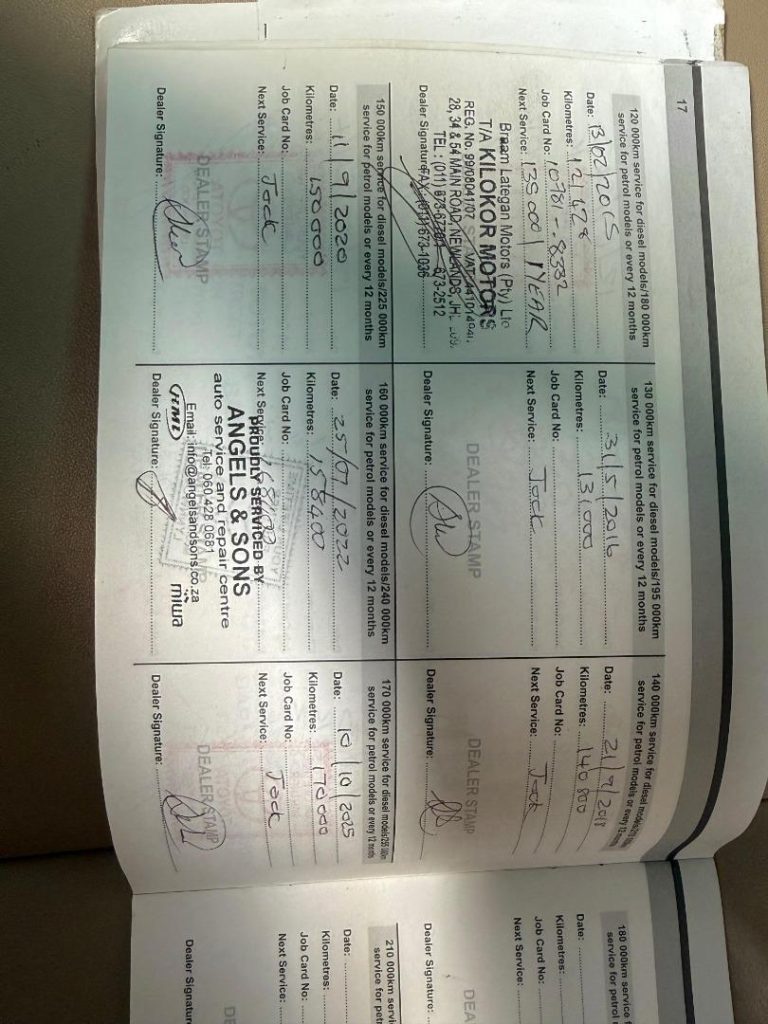 17
120 000km service for diesel models/180 000km
service for petrol models or every 12 months
Date: 13/02/2015
Kilometres: 121 428
Job Card No: 10781 - 8332
Next Service: 135 000 / 1 YEAR
Braam Lategan Motors (Pty) Ltd
T/A KILOKOR MOTORS
REG. No. 99/08041/07
28, 34 & 54 MAIN ROAD, NEWLANDS, JHB
TEL: (011) 673-2512
Dealer Signature: FAX: (011) 673-1036
130 000km service for diesel models/195 000km
service for petrol models or every 12 months
Date: 31/5/2016
Kilometres: 131000
Job Card No:
Next Service: Jock
DEALER STAMP
Dealer Signature:
140 000km service for diesel models/
service for petrol models or every 12 months
Date: 21/9/2018
Kilometres: 140 800
Job Card No:
Next Service: Jock
DEALER STAMP
Dealer Signature:
150 000km service for diesel models/225 000km
service for petrol models or every 12 months
Date: 11/9/2020
Kilometres: 150000
Job Card No:
Next Service: Jock
DEALER STAMP
Dealer Signature:
160 000km service for diesel models/240 000km
service for petrol models or every 12 months
Date: 25/07/2022
Kilometres: 158400
Job Card No:
Next Service:
PROUDLY SERVICED BY
ANGELS & SONS
auto service and repair centre
Tel: 060 428 0681
Email: info@angelsandsons.co.za
RMI miwa
Dealer Signature:
170 000km service for diesel models/255 000km
service for petrol models or every 12 months
Date: 10/10/2025
Kilometres: 170000
Job Card No:
Next Service: Jock
DEALER STAMP
Dealer Signature:
180 000km service
service for pet
Date:
Kilometres:
Job Card No:
Next Service:
DEA
Dealer Signature:
210 000km servi
service for pet
Date:
Kilometres:
Job Card No:
Next Service:
DE
Dealer Signature